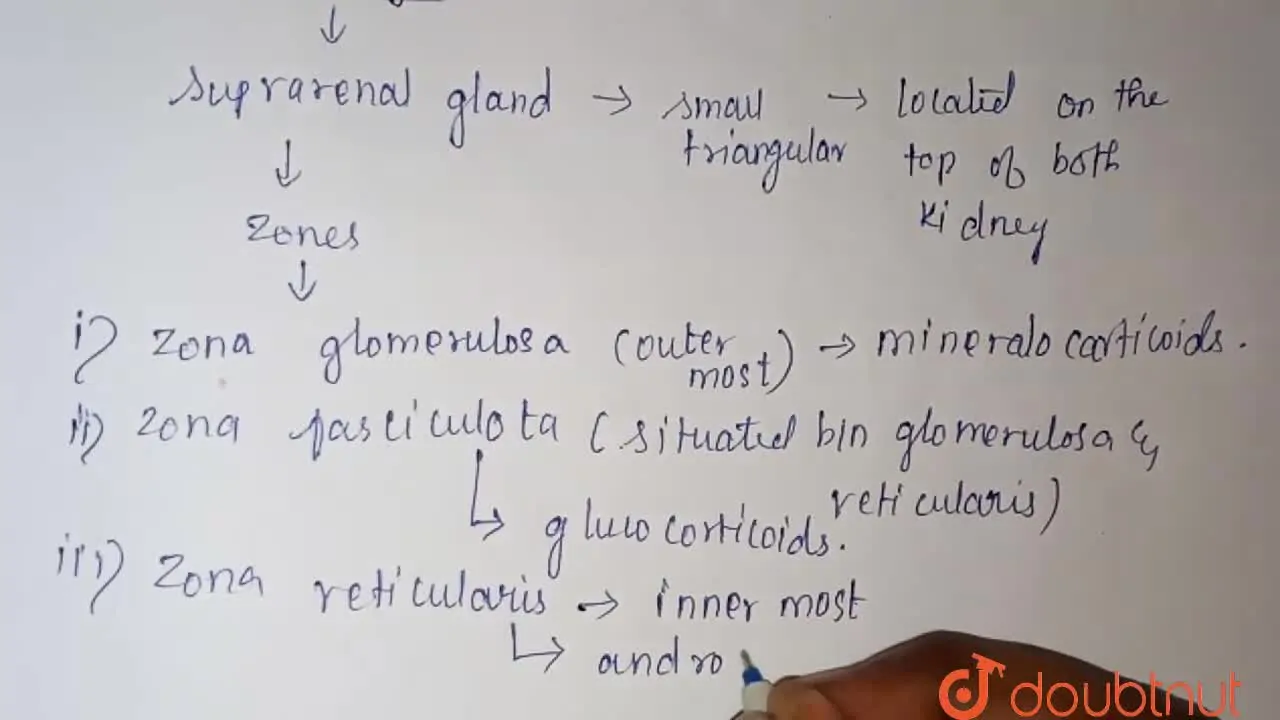 suprarenal gland → small → located on the
triangular top of both
kidney
↓
zones
↓
i) zona glomerulosa (outer most) → mineralo corticoids.
ii) zona fasciculota (situated b/n glomerulosa &
reticularis)
↳ gluco corticoids.
iii) zona reticularis → inner most
↳ andro
doubtnut